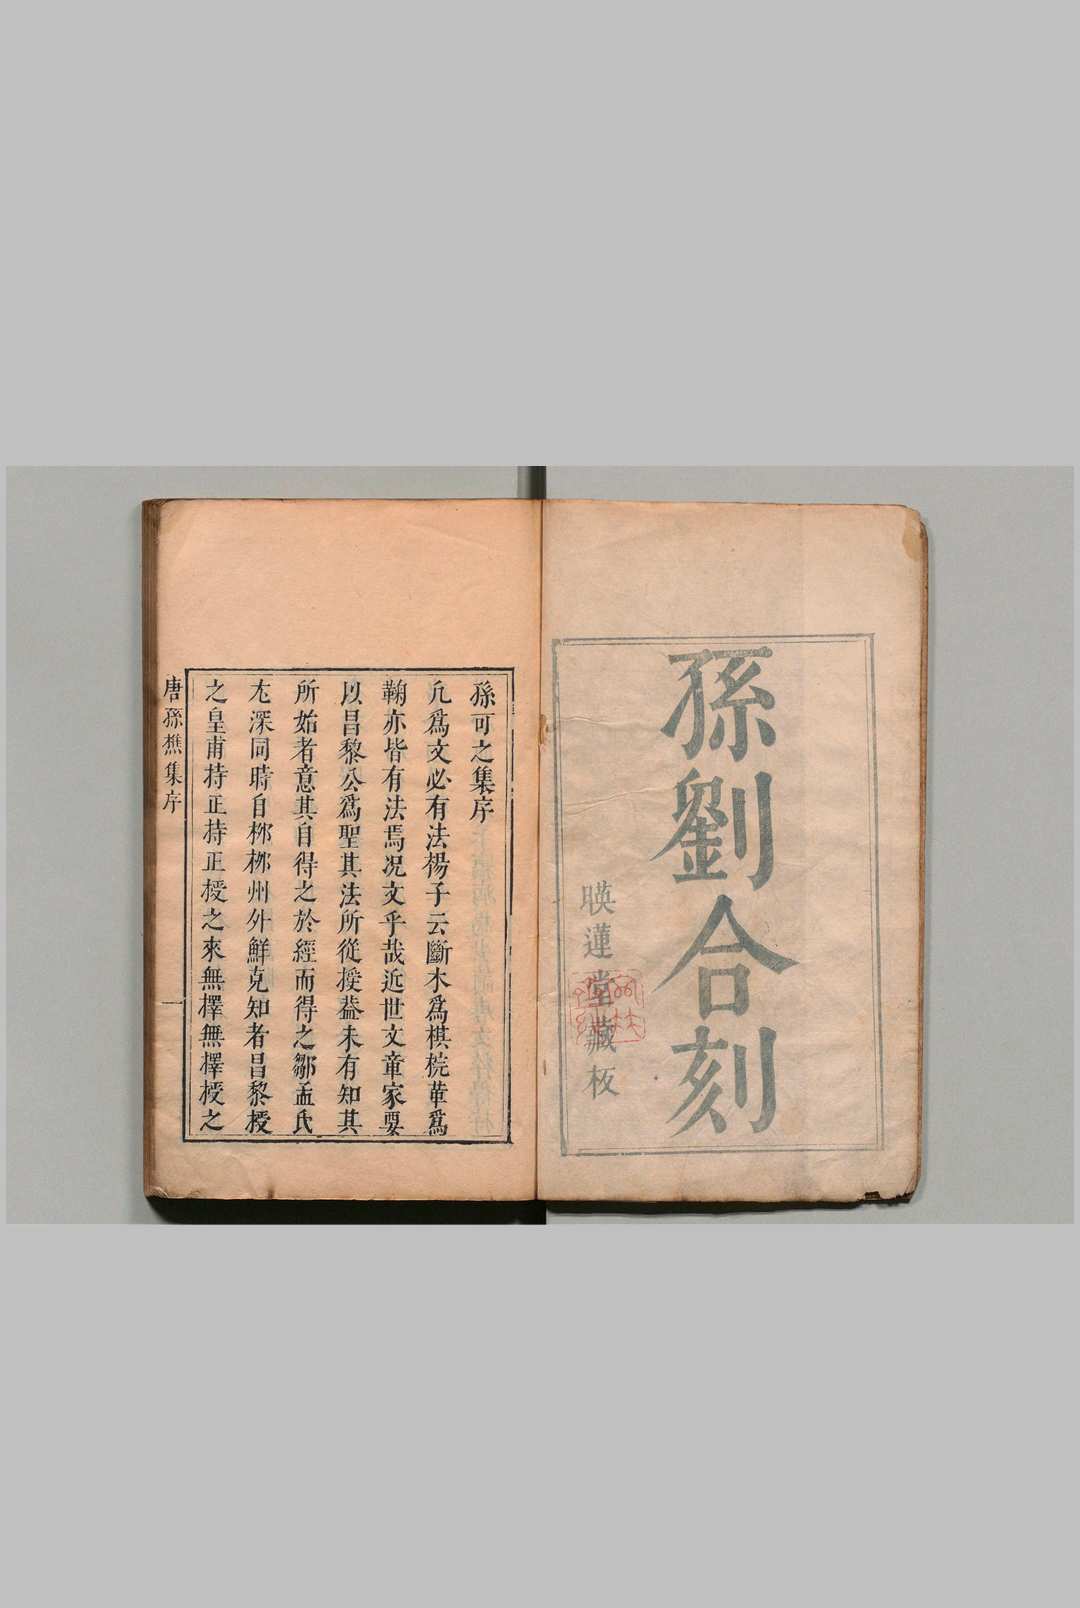 孫劉合刻
暎蓮堂藏板
孫可之集序
凢爲文必有法楊子云斷木爲棋梡革爲
鞠亦皆有法焉况文乎哉近世文章家要
以昌黎公爲聖其法所從授葢未有知其
所始者意其自得之於經而得之鄒孟氏
尤深同時自桺桺州外鮮克知者昌黎授
之皇甫持正持正授之來無擇無擇授之
唐孫樵集序
一